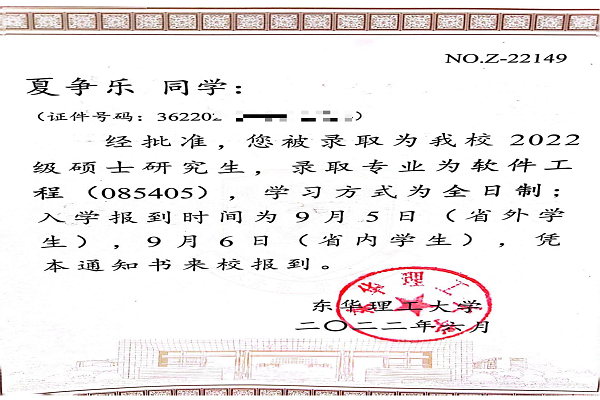 NO.Z-22149
夏争乐 同学：
（证件号码：36220
经批准，您被录取为我校2022
级硕士研究生，录取专业为软件工
程（085405），学习方式为全日制；
入学报到时间为9月5日（省外学
生），9月6日（省内学生），凭
本通知书来校报到。
东华理工大学
二〇二二年六月